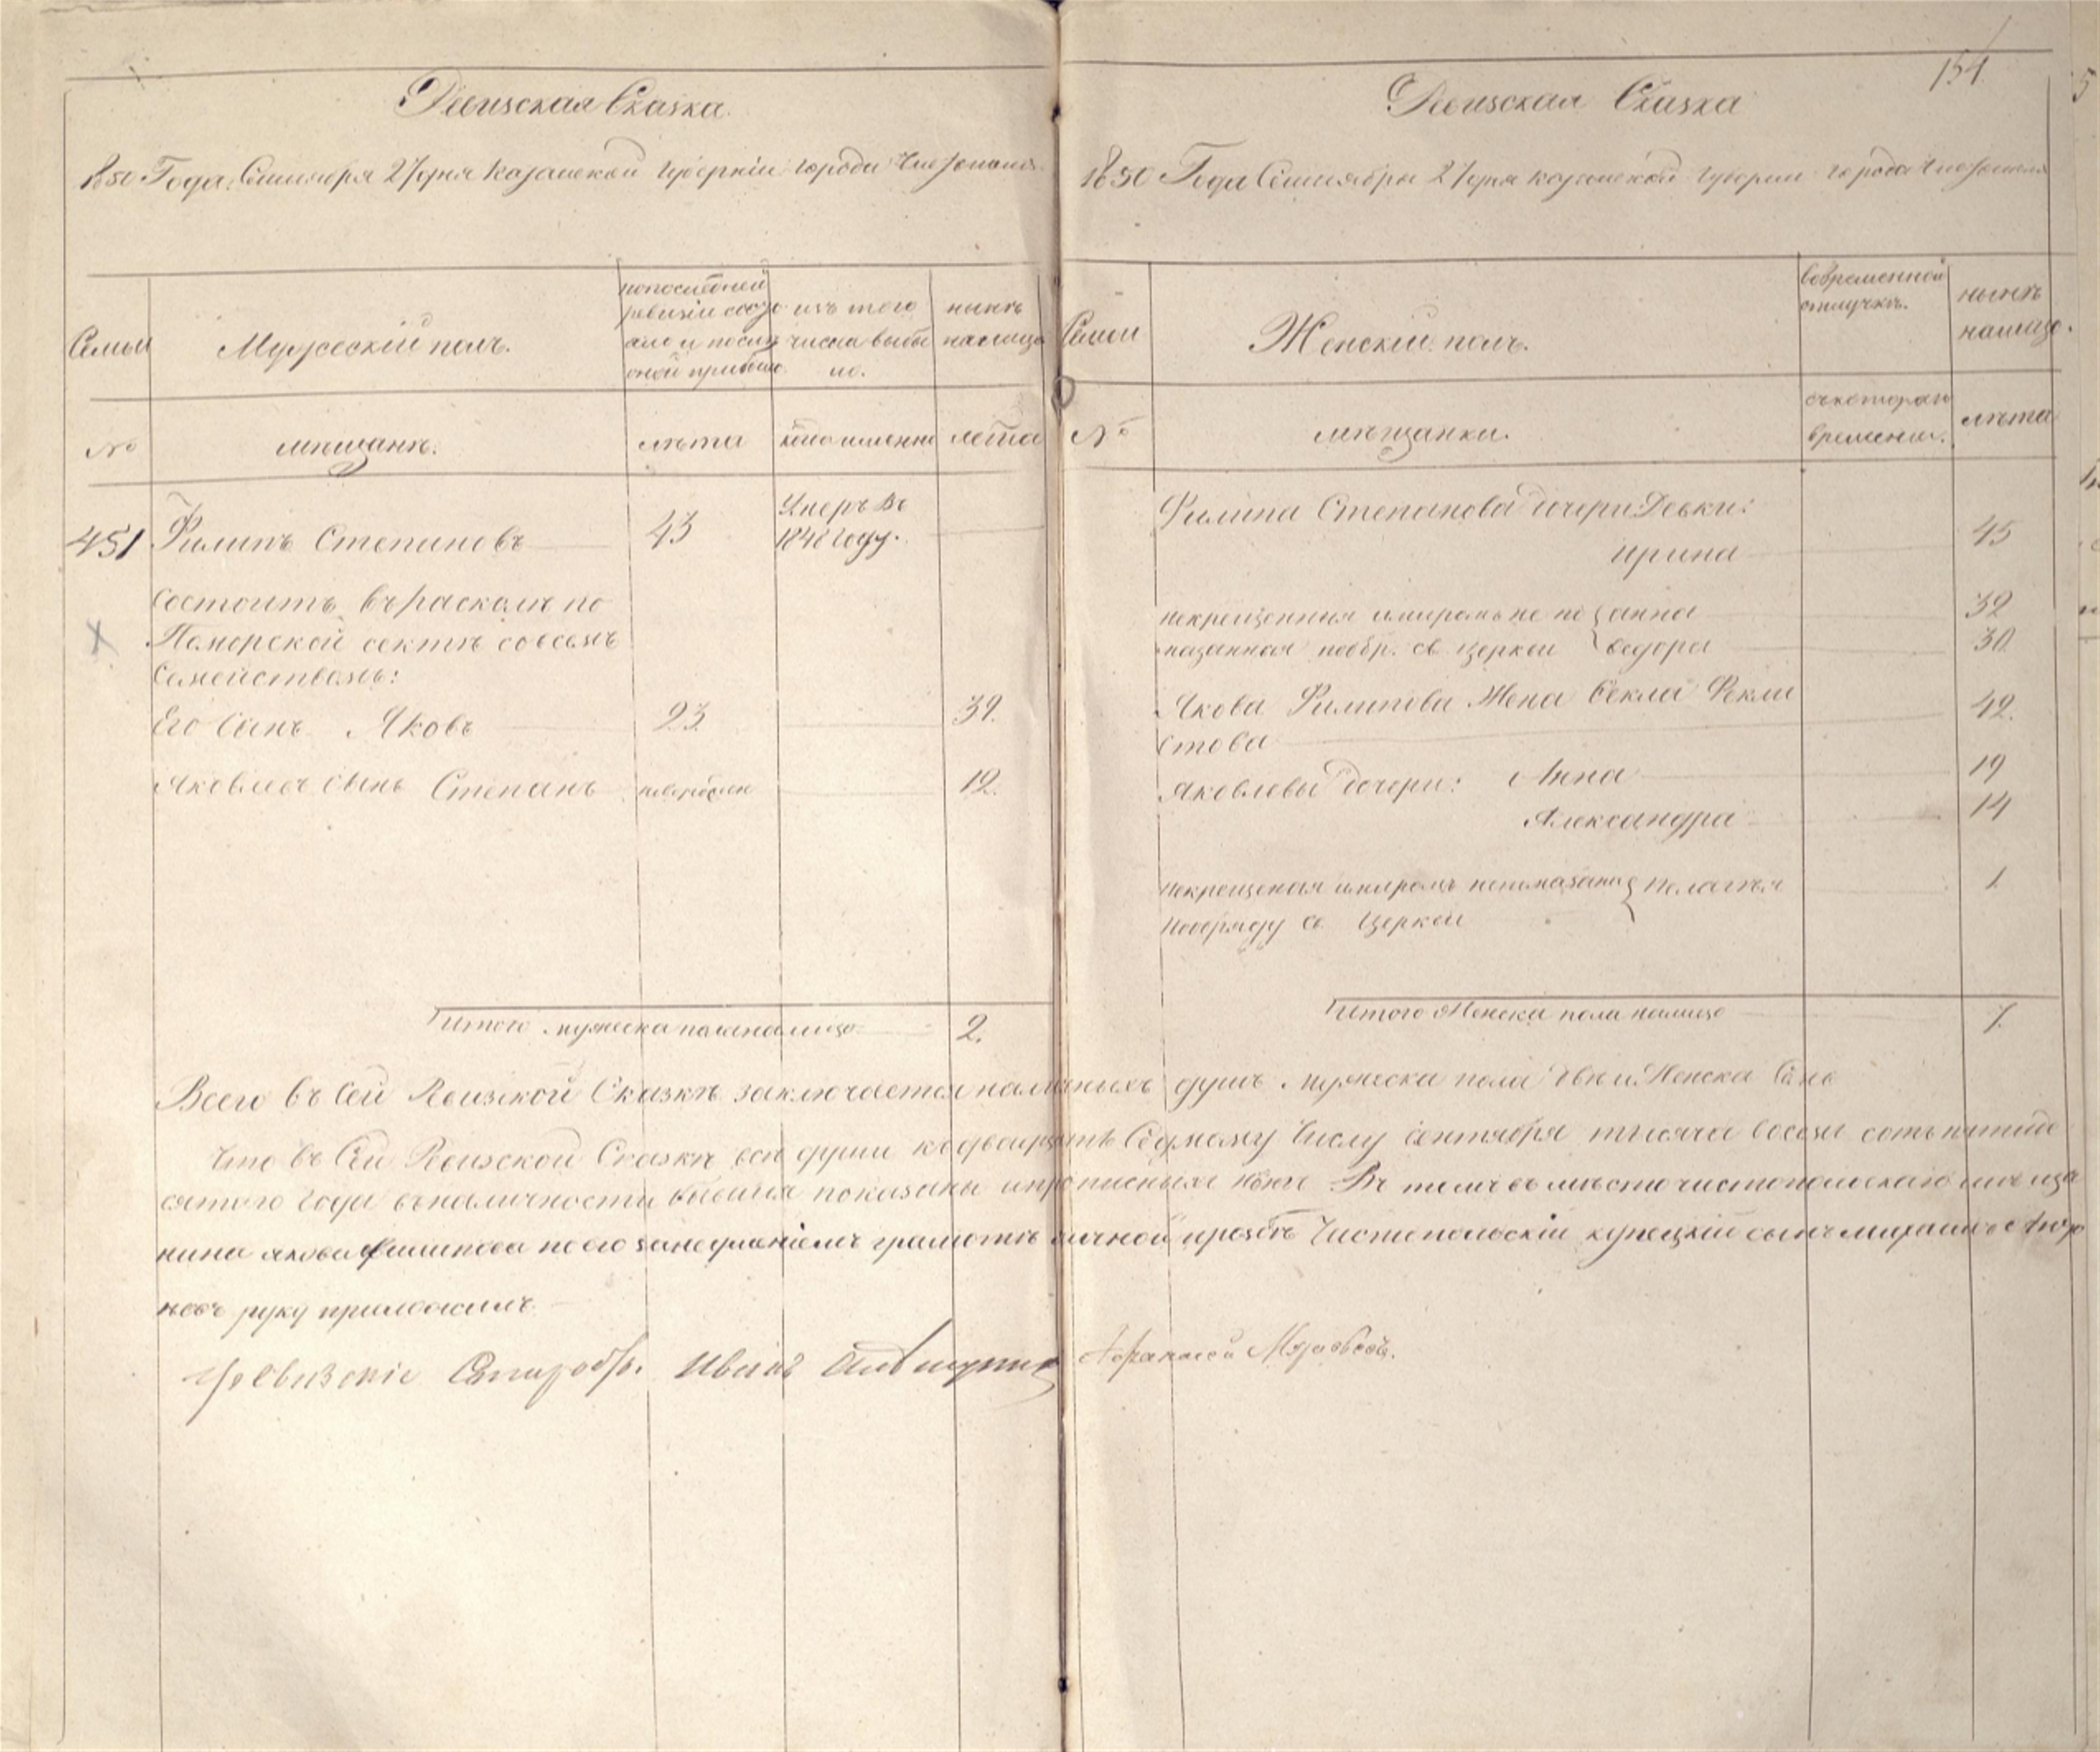 Ревизская Сказка.
1850 Года Сентября 27 дня Казанской Губернии города Чистополя
Семьи
Мужеский полъ.
по последней
ревизіи состо
яло и после
оной прибыло
изъ того
числа выбы
ло.
ныне
налицо
№
мещане.
лета
когда именно
лета
451
Филипъ Степановъ
43
Умеръ въ
1848 году.
Состоитъ въ расколе по
Поморской секте со всемъ
Семействомъ:
Его Сынъ Яковъ
23
32.
Яковлевъ Сынъ Степанъ
12.
Итого мужеска пола налицо
2.
154
Ревизская Сказка
1850 Года Сентября 27 дня Казанской Губернии города Чистополя
Семьи
Женскій полъ.
во временной
отлучке.
ныне
налицо.
№
мещанки.
съ котораго
времени.
лета
Филипа Степанова дочери Девки:
Ирина
45
некрещенныя и миромъ не по
анна
32
мазанная по обр. св церкви
Федора
30
Якова Филипова Жена Фекла Фекли
стова
42.
Яковлевы дочери: Анна
19
Александра
14
некрещеная и миромъ непомазана
Пелагея
1
по обряду св Церкви
Итого Женска пола налицо
7.
Всего въ Сей Ревизской Сказке заключается наличныхъ душъ мужеска пола две и Женска Семь
Что въ Сей Ревизской Сказке все души къ двадцать Седмому Числу Сентября тысяча восемь сотъ пятиде
сятого Года въ наличности бывшія показаны и прописныхъ нетъ Въ томъ въ место чистопольскаго меща
нина якова филипова по его за неуменіемъ грамоте личной прозбе Чистопольскій купецкій сынъ
новъ руку приложилъ.
Иванъ